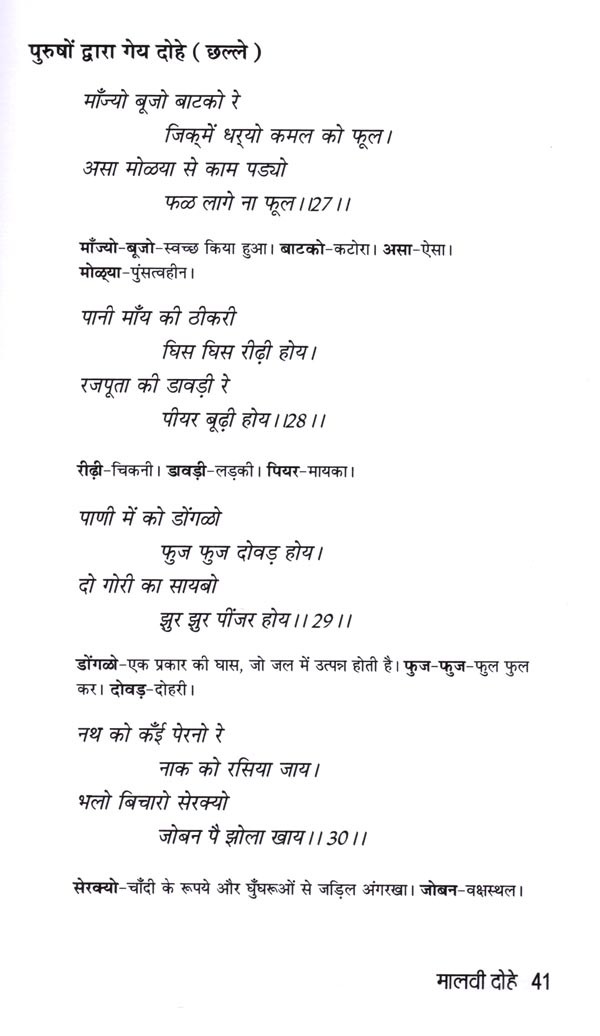 पुरुषों द्वारा गेय दोहे ( छल्ले )
माँज्यो बूजो बाटको रे
जिक्‌में धर्‌यो कमल को फूल।
असा मोळया से काम पड्यो
फळ लागे ना फूल।।27।।
माँज्यो-बूजो-स्वच्छ किया हुआ। बाटको-कटोरा। असा-ऐसा।
मोळ्या-पुंसत्वहीन।
पानी माँय की ठीकरी
घिस घिस रीढ़ी होय।
रजपूता की डावड़ी रे
पीयर बूढ़ी होय।।28।।
रीढ़ी-चिकनी। डावड़ी-लड़की। पियर-मायका।
पाणी में को डोंगळो
फुज फुज दोवड़ होय।
दो गोरी का सायबो
झुर झुर पींजर होय।। 29।।
डोंगळो-एक प्रकार की घास, जो जल में उत्पन्न होती है। फुज-फुज-फुल फुल
कर। दोवड़-दोहरी।
नथ को कँई पेरनो रे
नाक को रसिया जाय।
भलो बिचारो सेरक्यो
जोबन पै झोला खाय।। 30।।
सेरक्यो-चाँदी के रूपये और घुँघरूओं से जड़िल अंगरखा। जोबन-वक्षस्थल।
मालवी दोहे 41